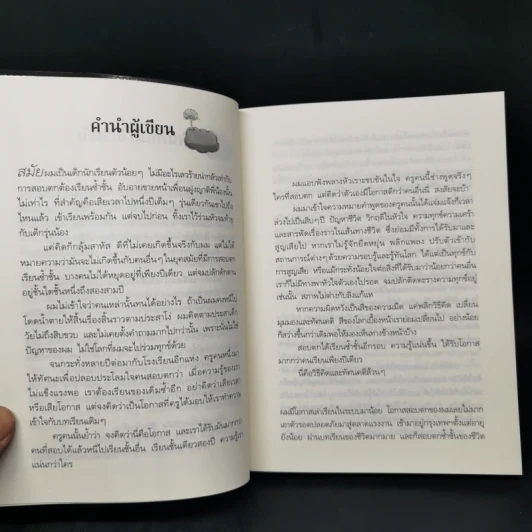 คำนำผู้เขียน
สมัยผมเป็นเด็กนักเรียนตัวน้อยๆ ไม่มีอะไรเลวร้ายน่ากลัวเท่ากับ
การสอบตกต้องเรียนซ้ำชั้น อับอายขายหน้าเพื่อนฝูงญาติพี่น้องนั้น
ไม่เท่าไร ที่สำคัญคือเสียเวลาไปหนึ่งปีเต็มๆ รุ่นเดียวกันเขาไปถึง
ไหนแล้ว เข้าเรียนพร้อมกัน แต่จบไปก่อน ทิ้งเราไว้ร่วมหัวจมท้าย
กับเด็กรุ่นน้อง
แต่คิดก็กลุ้มสาหัส ดีที่ไม่เคยเกิดขึ้นจริงกับผม แต่ไม่ได้
หมายความว่ามันจะไม่เกิดขึ้นกับคนอื่นๆ ในยุคสมัยที่มีการสอบตก
เรียนซ้ำชั้น บางคนไม่ได้หยุดอยู่ที่เพียงปีเดียว แต่จมปลักดักดาน
อยู่ชั้นใดชั้นหนึ่งถึงสองสามปี
ผมไม่เข้าใจว่าคนเหล่านั้นทนได้อย่างไร ถ้าเป็นผมคงหนีไป
โดดน้ำตายให้สิ้นเรื่องสิ้นราวตามประสาโง่ ผมคิดตามประสาเด็ก
วัยไม่ถึงสิบขวบ และไม่เคยตั้งคำถามมากไปกว่านั้น เพราะนั่นไม่ใช่
ปัญหาของผม ไม่ใช่โลกที่ผมจะไปร่วมทุกข์ด้วย
จนกระทั่งหลายปีต่อมากับโรงเรียนอีกแห่ง ครูคนหนึ่งมา
ให้ทัศนะเพื่อปลอบประโลมใจคนสอบตกว่า เมื่อความรู้ของเรา
ไม่แข็งแรงพอ เราต้องเรียนของเดิมซ้ำอีก อย่าคิดว่าเสียเวลา
หรือเสียโอกาส แต่จงคิดว่าเป็นโอกาสที่ครูได้มอบให้เราทำความ
เข้าใจกับบทเรียนเดิมๆ
ครูคนนั้นย้ำว่า จงคิดว่านี่คือโอกาส และเราได้รับมันมากกว่า
คนที่สอบได้แล้วหนีไปเรียนชั้นอื่น เรียนชั้นเดียวสองปี ความรู้เรา
แน่นกว่าใคร
ผมแอบฟังพลางหัวเราะขบขันในใจ ครูคนนี้ช่างพูดจริงๆ
ใครที่สอบตก แต่คิดว่าตัวเองมีโอกาสดีกว่าคนอื่นนี่ สงสัยจะบ้า
ผมมาเข้าใจความหมายคำพูดของครูคนนั้นได้แจ่มแจ้งก็เวลา
ล่วงไปเป็นสิบๆ ปี ปัญหาชีวิต วิกฤติในหัวใจ ความทุกข์ความเศร้า
และสารพัดเรื่องราวในเส้นทางชีวิต ซึ่งย่อมมีทั้งการได้รับมาและ
สูญเสียไป หากเราไม่รู้จักยืดหยุ่น พลิกแพลง ปรับตัวเข้ากับ
สถานการณ์ต่างๆ ด้วยความรอบรู้และรู้ทันโลก ได้แต่เป็นทุกข์กับ
การสูญเสีย หรือแม้กระทั่งน้อยใจต่อสิ่งที่ได้รับมาว่าน้อยกว่าคนอื่น
เราก็ไม่มีทางพาหัวใจตัวเองไปรอด จมปลักติดตะรางความทุกข์อยู่
เช่นนั้น สภาพไม่ต่างกับลิงแก้แห
หากความมืดหวังเป็นสีของความมืด แต่พลิกวิธีคิด เปลี่ยน
มุมมองและทัศนคติ สีของโลกเบื้องหน้าเราย่อมเปลี่ยนไป อย่างน้อย
ก็สว่างขึ้นกว่าเดิมพอให้มองเห็นทางข้างหน้าบ้าง
สอบตกได้เรียนซ้ำชั้นอีกรอบ ความรู้แน่นขึ้น ได้รับโอกาส
มากกว่าคนเรียนเพียงปีเดียว
นี่คือวิธีคิดและทัศนคติล้วนๆ
ผมมีโอกาสเล่าเรียนในระบบมาน้อย โอกาสสอบตกของผมเลยไม่มาก
เอาตัวรอดปลอดภัยมาสู่ตลาดแรงงาน เข้ามาอยู่กรุงเทพฯ ตั้งแต่อายุ
ยังน้อย ผ่านบทเรียนของชีวิตมากมาย และก็สอบตกซ้ำชั้นของชีวิต